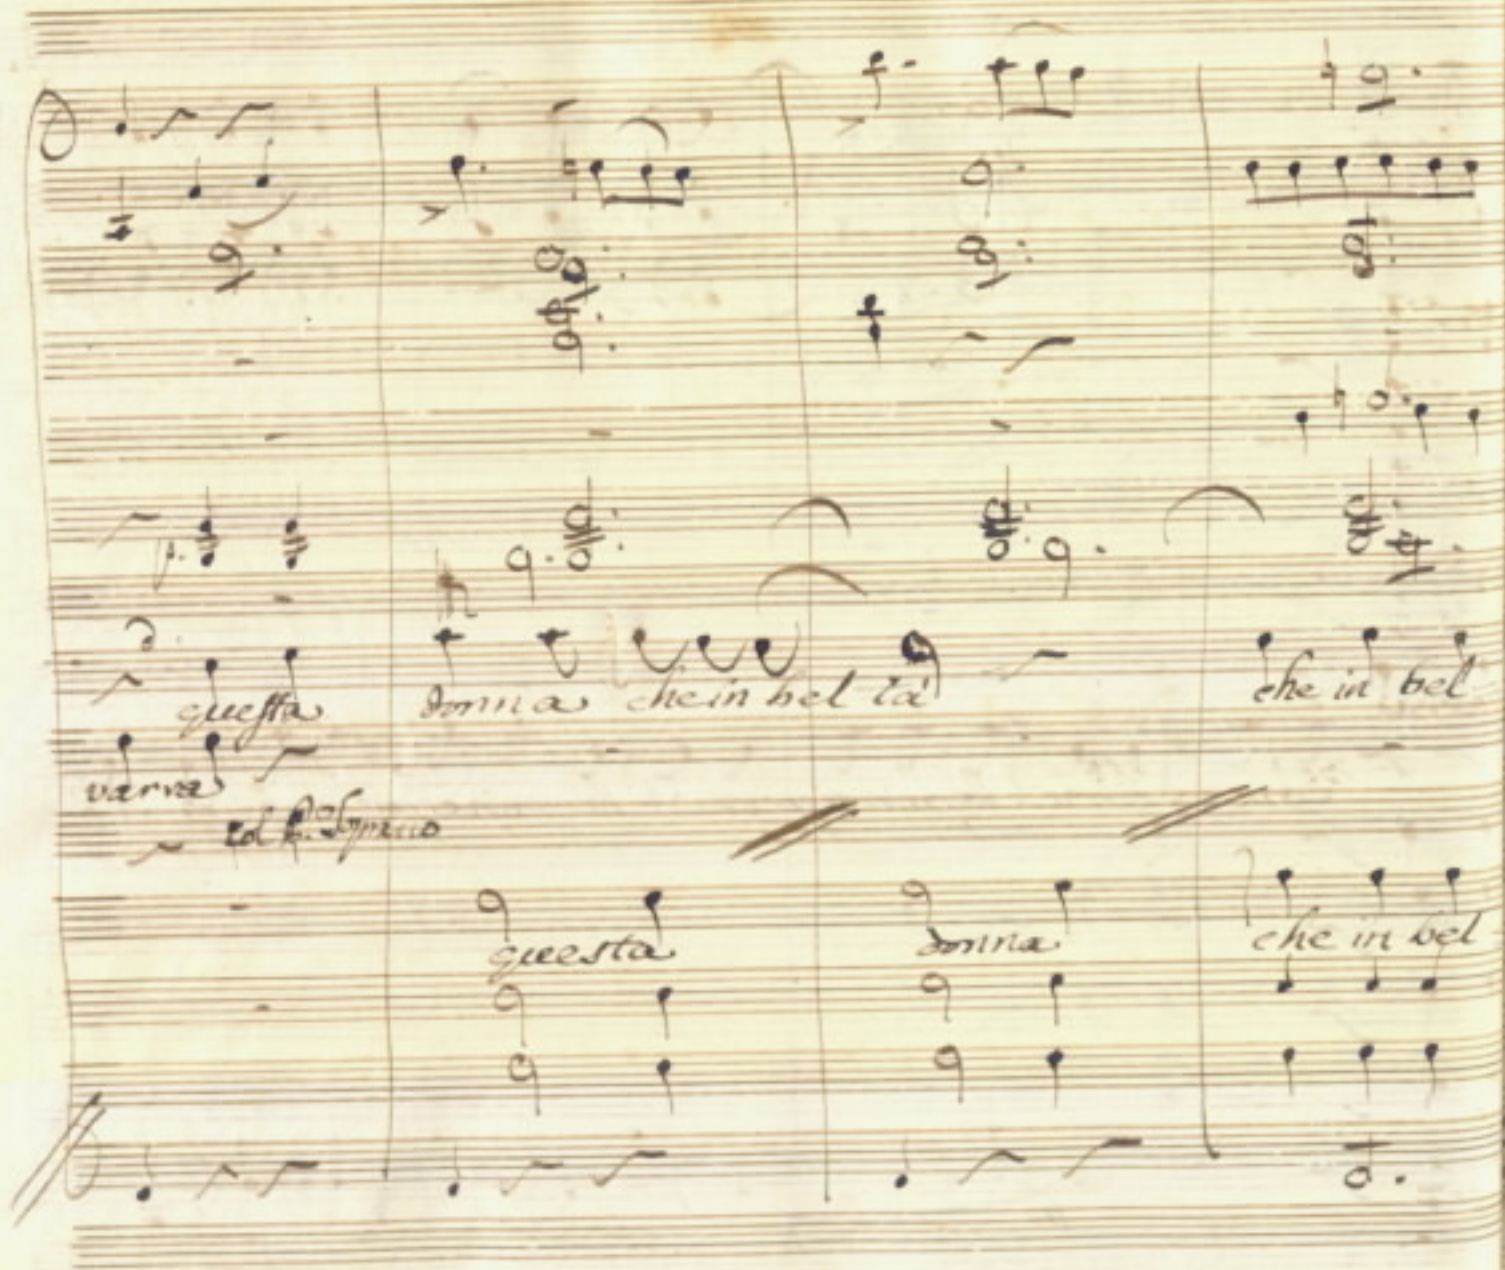 p.
questa donna che in bel tà che in bel
varva
col P.o Soprano
questa donna che in bel